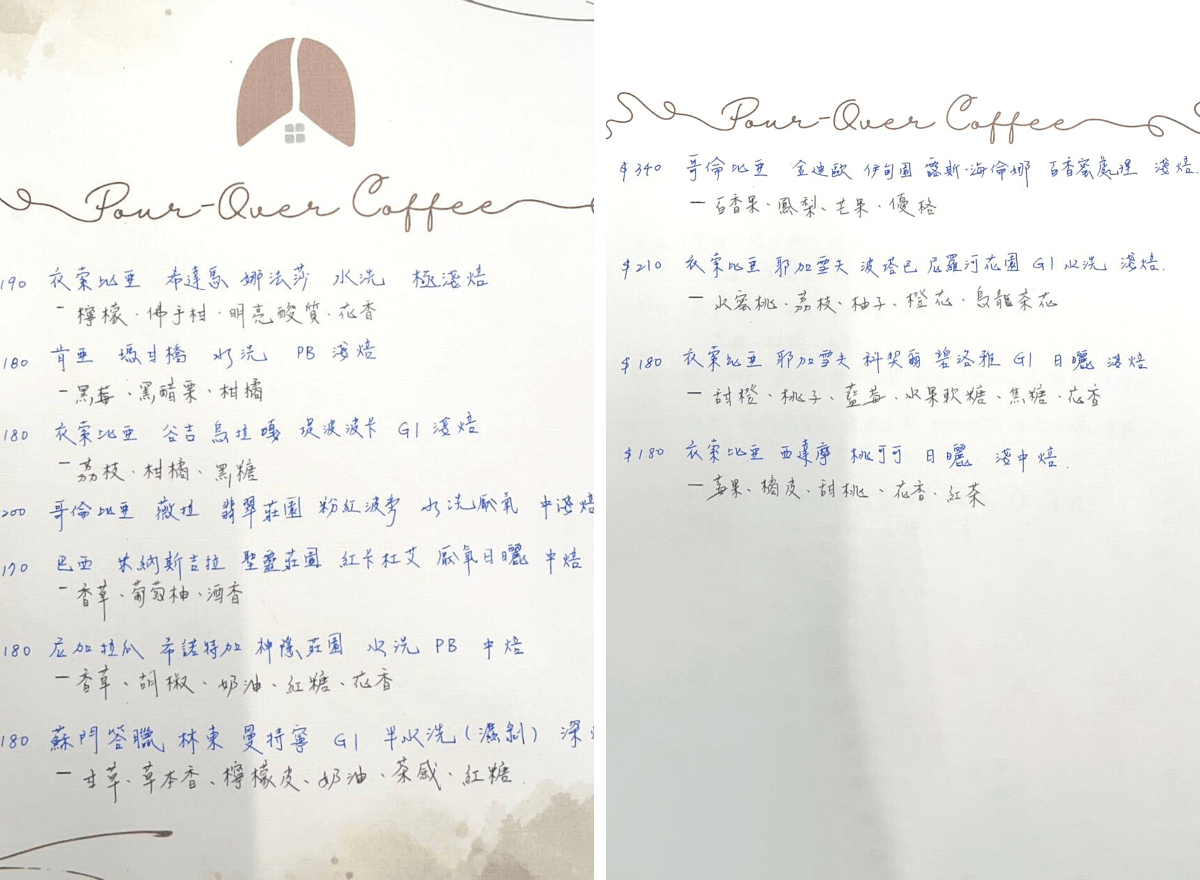 Pour-Over Coffee
190 衣索比亞 希達馬 娜法莎 水洗 極淺焙
- 檸檬、佛手柑、明亮酸質、花香
180 肯亞 瑪甘橋 水洗 PB 淺焙
- 黑莓、黑醋栗、柑橘
180 衣索比亞 谷吉 烏拉嘎 堤波波卡 G1 淺焙
- 荔枝、柑橘、黑糖
200 哥倫比亞 薇拉 翡翠莊園 粉紅波旁 水洗厭氧 中淺焙
170 巴西 米納斯吉拉 聖靈莊園 紅卡杜艾 厭氧日曬 中焙
- 香草、葡萄柚、酒香
180 尼加拉瓜 希諾特加 神隱莊園 水洗 PB 中焙
- 香草、胡椒、奶油、紅糖、花香
180 蘇門答臘 林東 曼特寧 G1 半水洗(濕剝) 深
- 甘草、草本香、檸檬皮、奶油、茶感、紅糖.
Pour-Over Coffee
$340 哥倫比亞 金迪歐 伊甸園 露斯·海倫娜 百香蜜處理 淺焙.
- 百香果、鳳梨、芒果、優格
$210 衣索比亞 耶加雪夫 波塔巴 尼羅河花園 G1 水洗 淺焙.
- 水蜜桃、荔枝、柚子、橙花、烏龍茶花
$180 衣索比亞 耶加雪夫 科契爾 碧洛雅 G1 日曬 淺焙
- 甜橙、桃子、藍莓、水果軟糖、焦糖、花香
$180 衣索比亞 西達摩 桃可可 日曬 淺中焙.
- 莓果、橘皮、甜桃、花香、紅茶